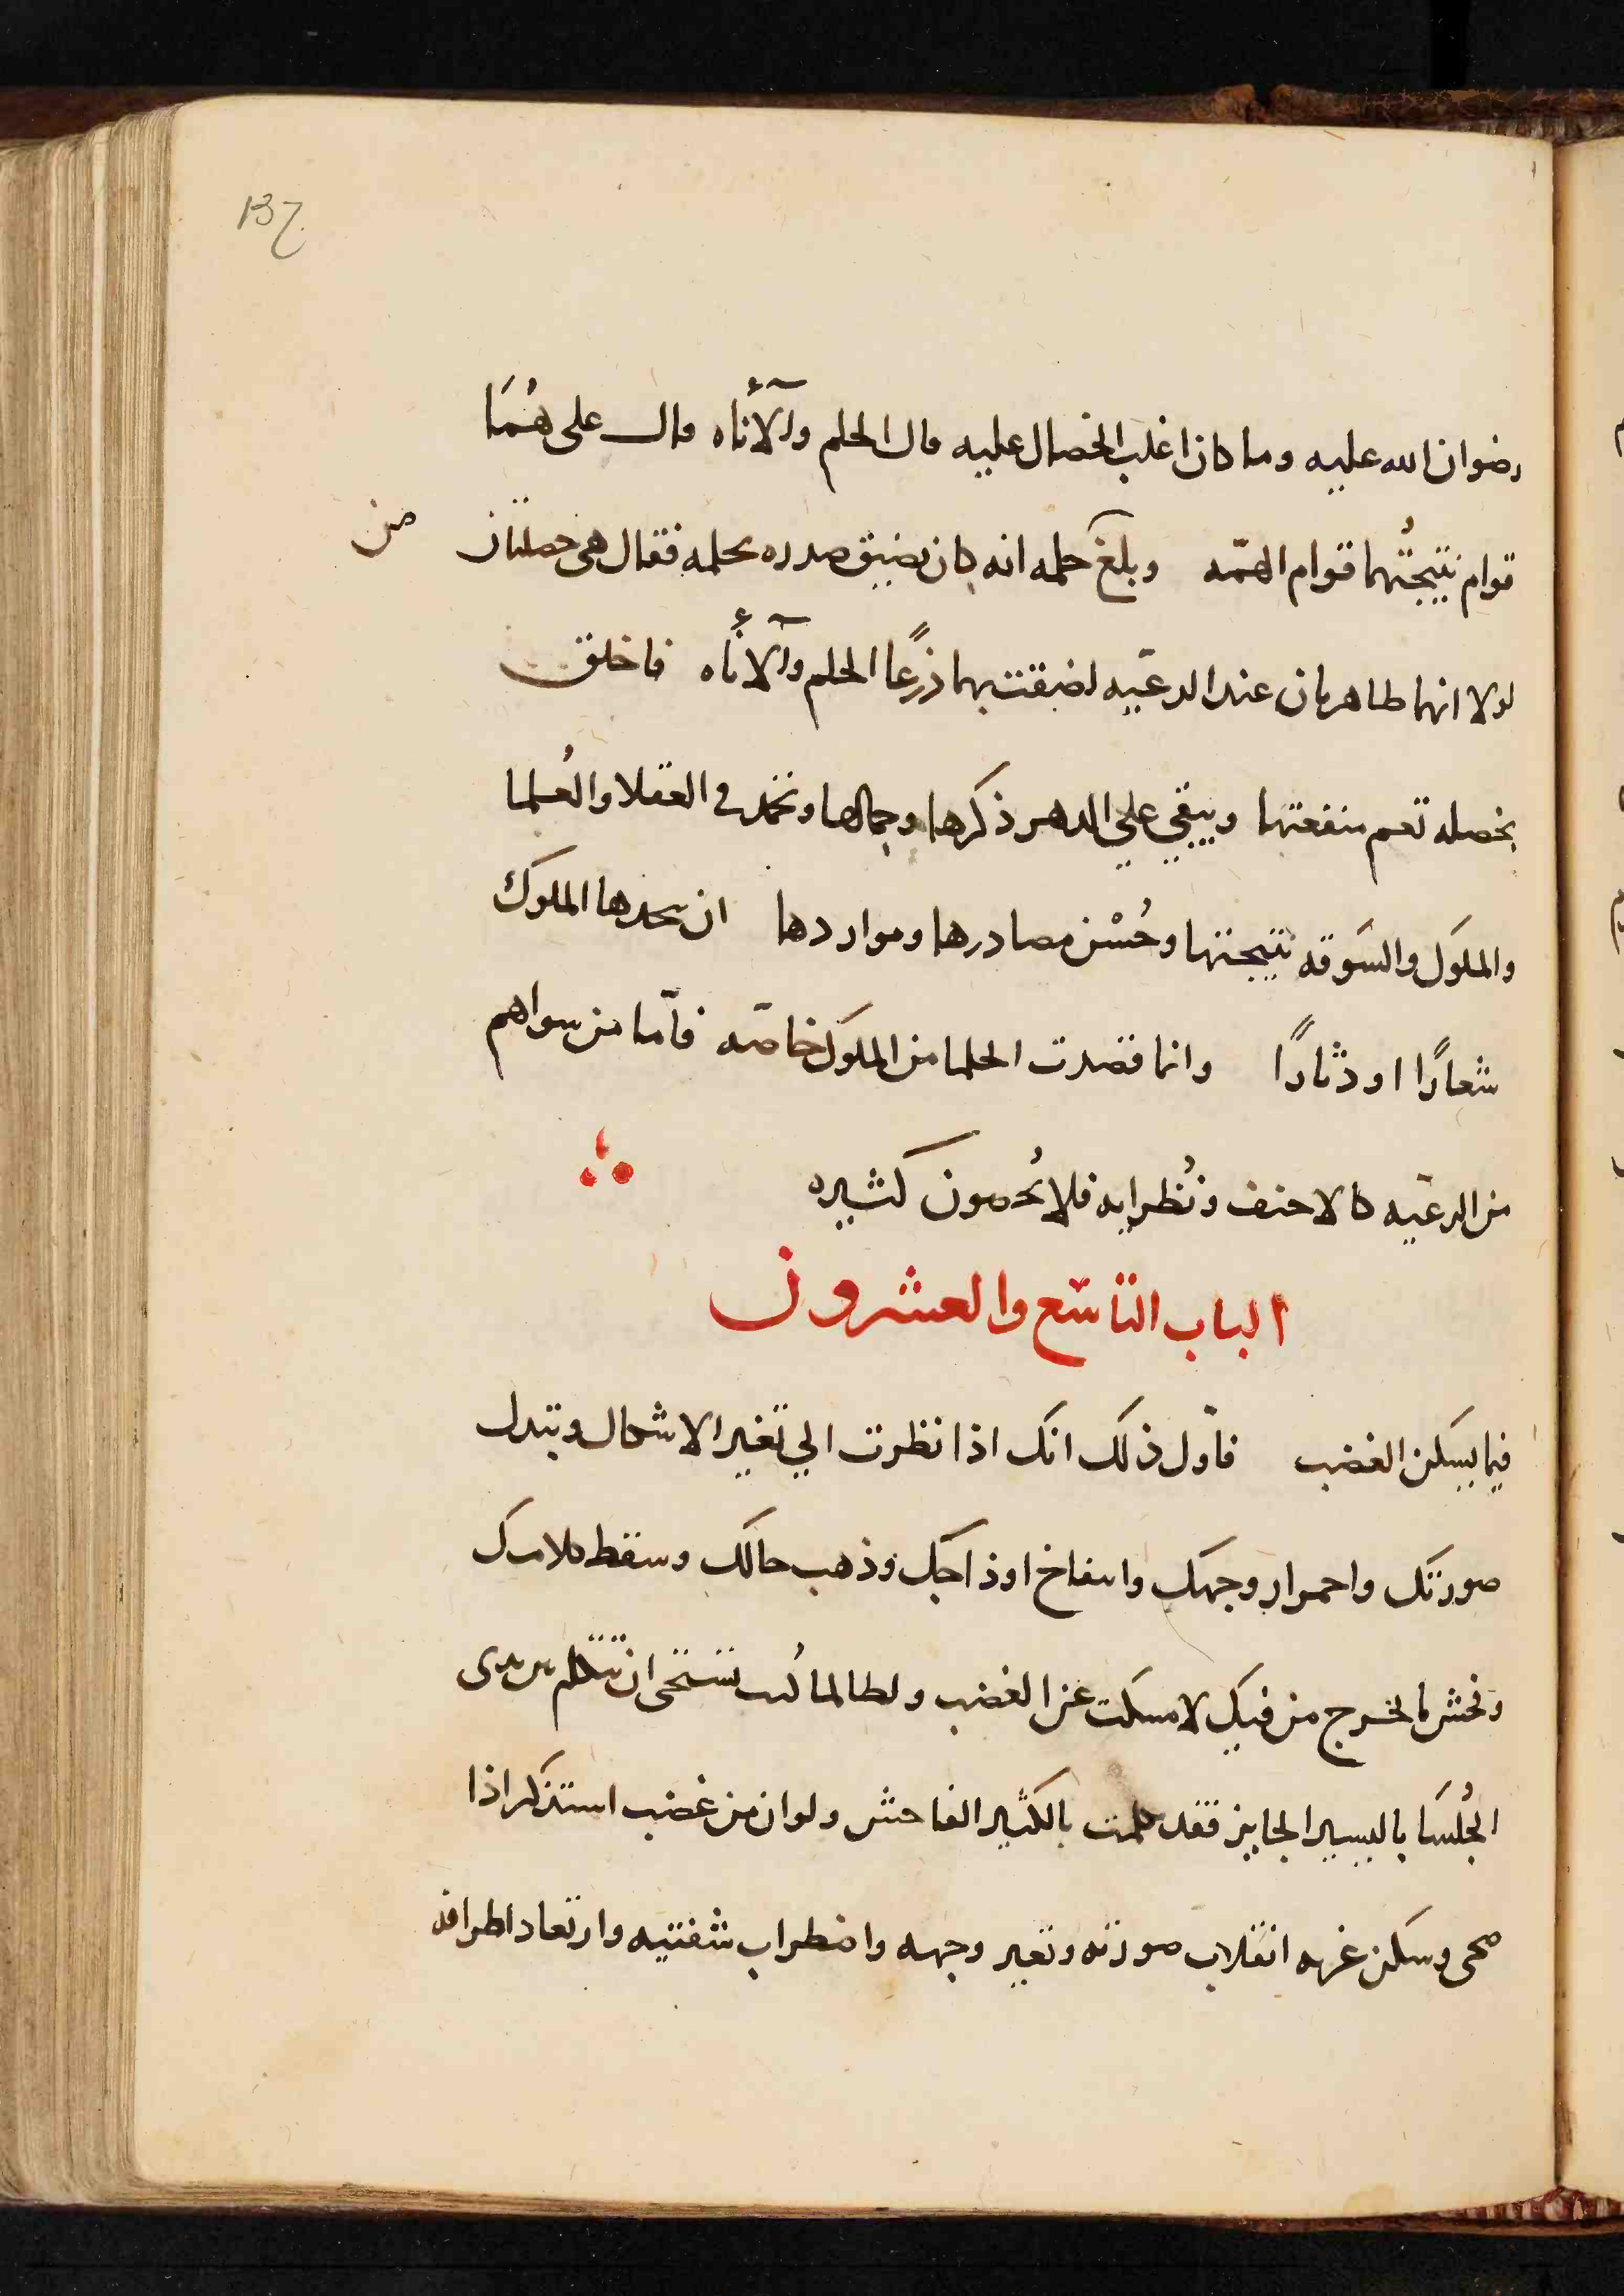 137
رضوان الله عليه وما كان اغلب الخصال عليه قال الحلم والأناه قال على هُمَا
قوام نتيجتُهما قوام الهمّه وبلغ حلمه انه كان يضيق صدره بحلمه فقال هي خصلتان من
لولا انهما ظاهرتان عند الرعيّه لضقت بهما ذرعًا الحلم والأناه فاخلق
بخصله تعم منفعتها ويبقي علي الدهر ذكرها وجمالها وتحمد في العقلا والعُلما
والملوك والسَوقه نتيجتها وحُسْن مصادرها ومواردها ان يتخذها الملوك
شعارًا او دثارًا وانما قصدت الحلما من الملوك خاصّه فامّا من سواهم
من الرعيّه كالاحنف ونُظرايه فلا يُحصون كثيره
الباب التاسع والعشرون
فيما يسكن الغضب فاوّل ذلك انك اذا نظرت الي تغير الاشكال وتبدل
صورتك واحمرار وجهك وانتفاخ اوداجك وذهب حالك وسقط كلامك
وفحش ما يخرج من فيك لامسكت عن الغضب ولطالما كُنت تستحى ان تتكلم بين يدى
الجُلسَا باليسير الجايز فقد تكلمت بالكثير الفاحش ولو ان من غضب استذكر اذا
صحى وسكن غربه انقلاب صورته وتغير وجهه واضطراب شفتيه وارتعاد اطرافه